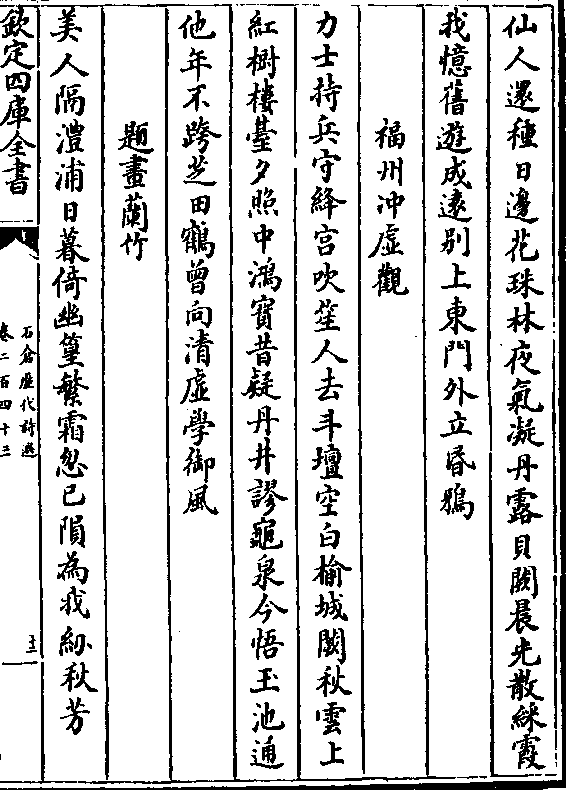 仙人還種日邊花珠林夜氣凝丹露貝闕晨光散綵霞
我憶舊遊成逺别上東門外立昏鴉
福州冲虛觀
力士持兵守絳宫吹笙人去斗壇空白榆城闕秋雲上
紅樹樓臺夕照中鴻寳昔疑丹井謬龜泉今悟玉池通
他年不跨芝田鶴曾向清虛學御風
題畫蘭竹
美人隔澧浦日暮倚幽篁繁霜忽已隕為我紉秋芳
欽定四庫全書
石倉歴代詩選
卷二百四十三
十三